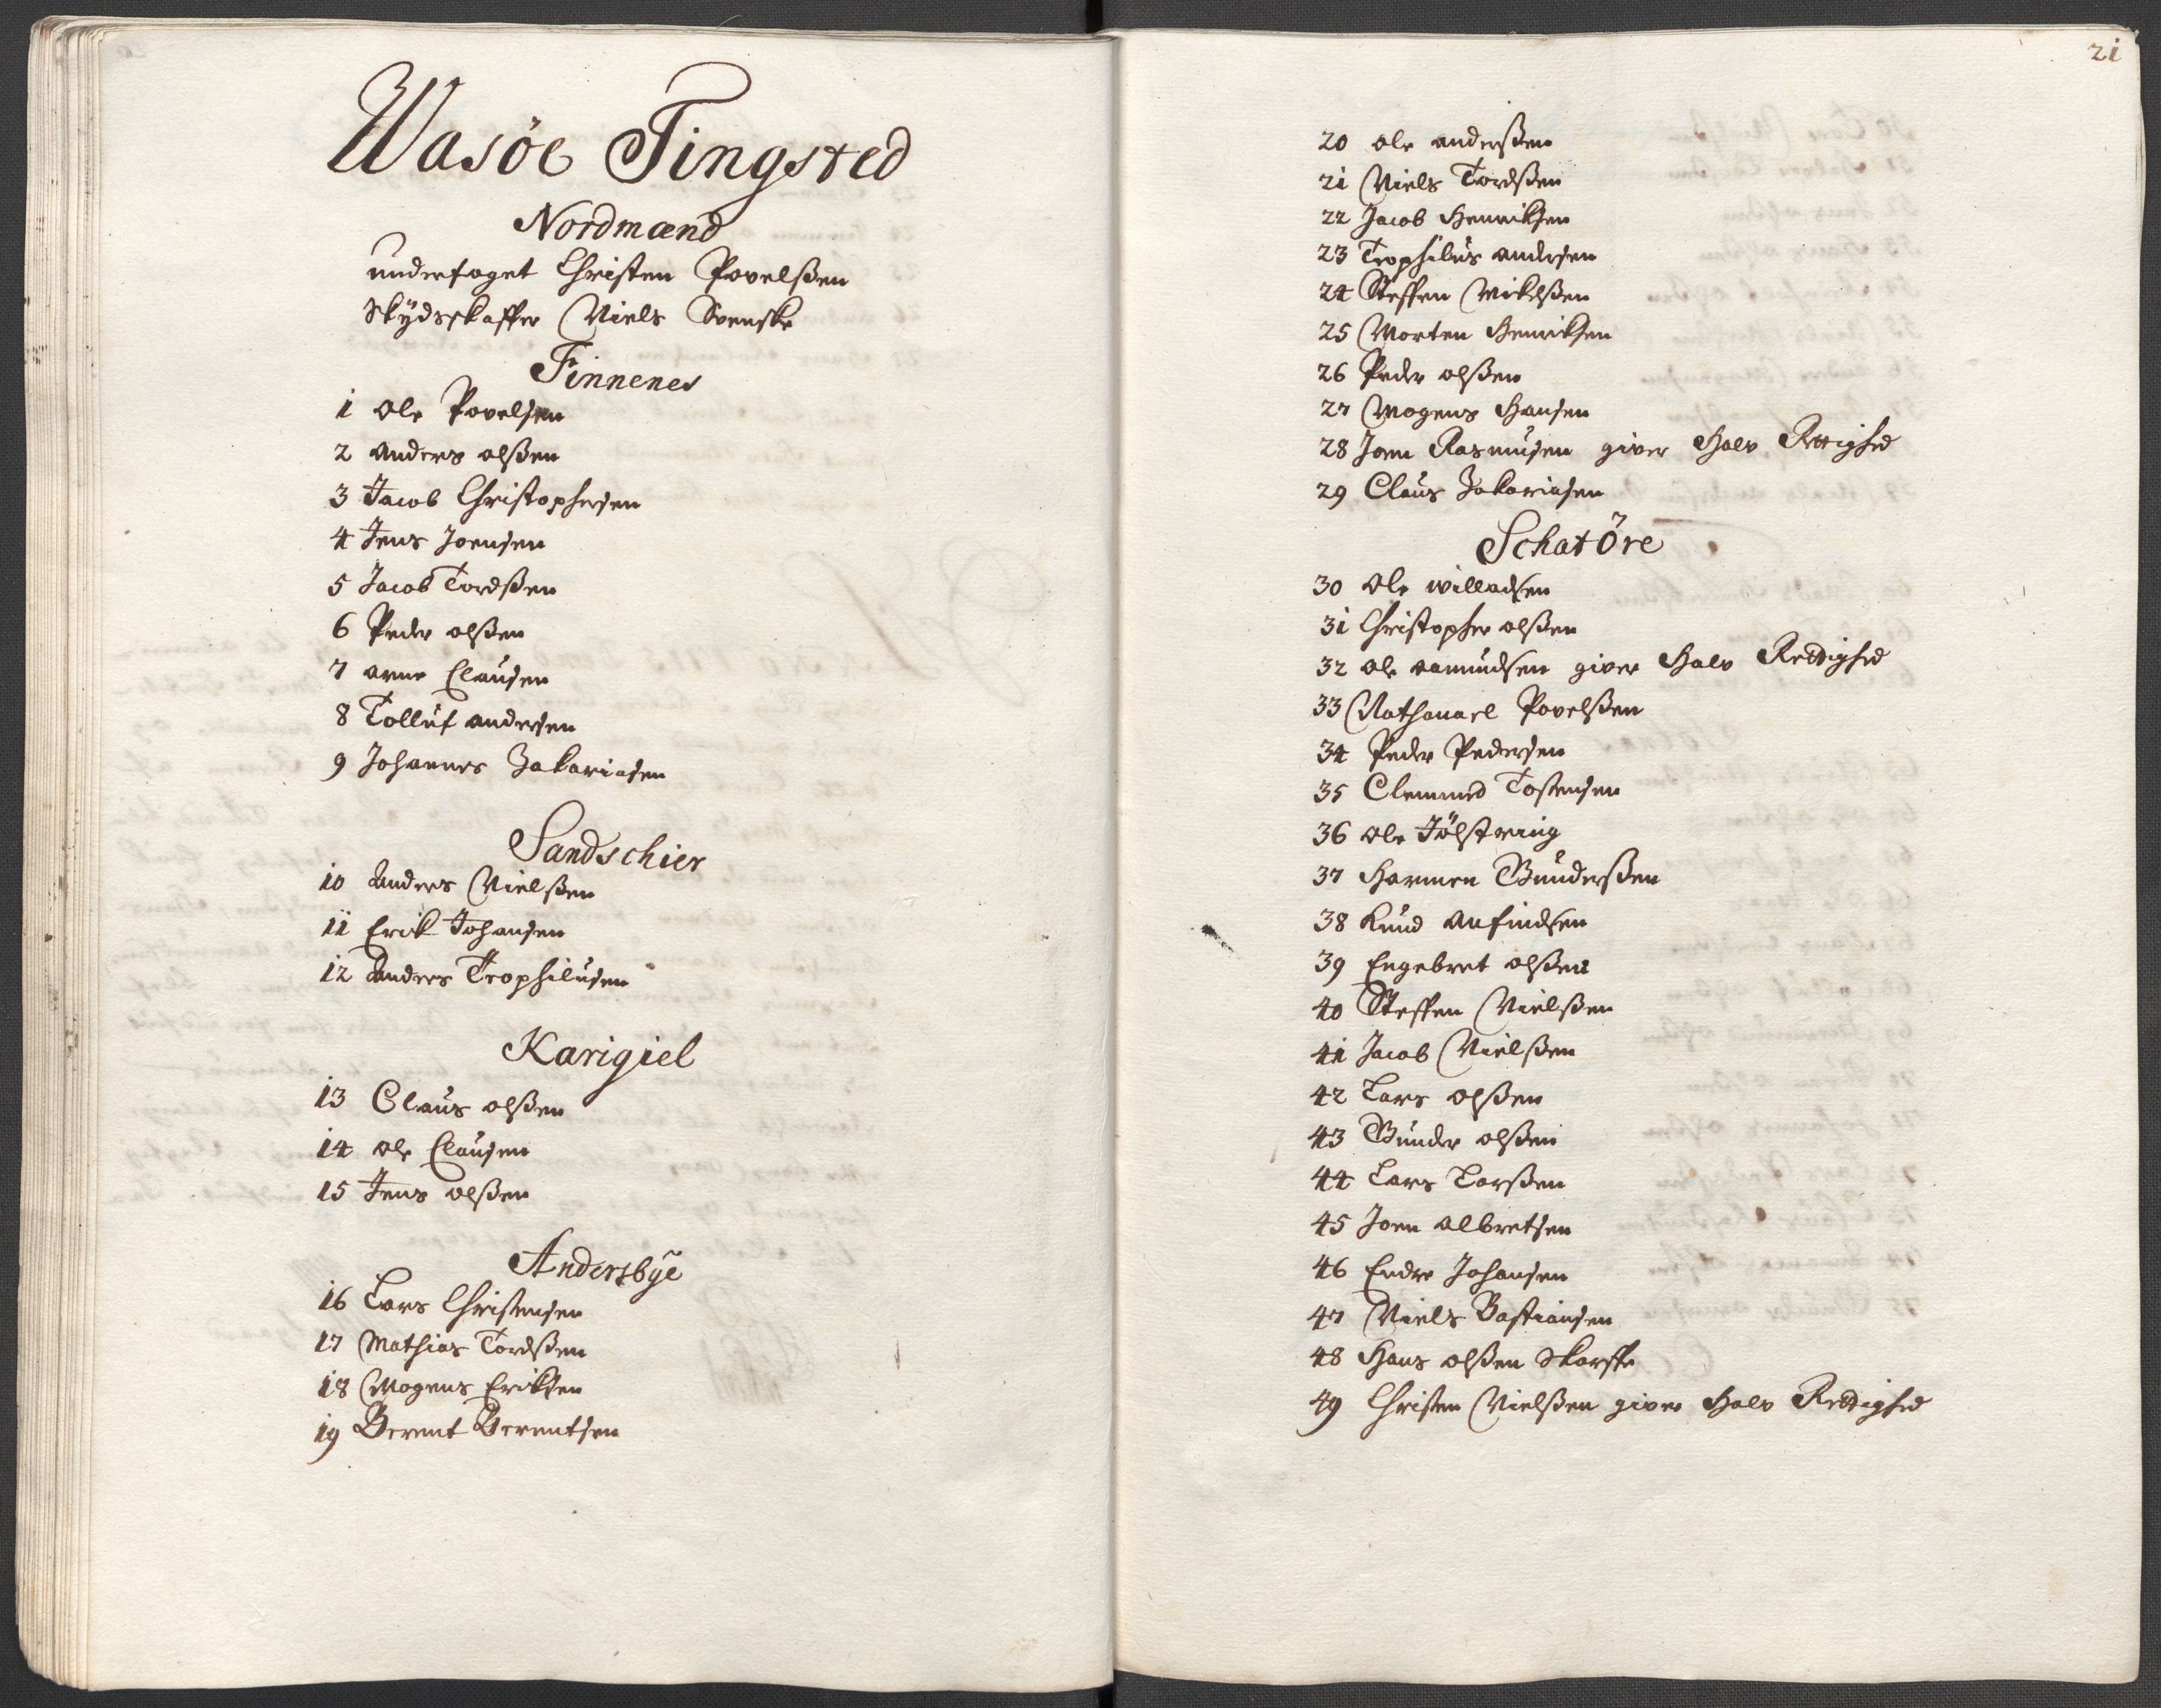 Wasöe Tingsted
Nordmænd
underfoget Christen Povelßen
Skÿdsskaffer Niels Svenske
Finnenes
1 Ole Povelsen
2 Anders olßen
3 Jacob Christophersen
4 Jens Joensen
5 Jacob Tordßen
6 Peder olßen
7 arne Clausen
8 Tolluf andersen
9 Johannes Zakariasen
Sandschier
10 Anders Nielßen
11 Erik Johansen
12 Anders Trophilusen
Karigiel
13 Claus olßen
14 ole Clausen
15 Jens olßen
Andersbÿe
16 Lars Christensen
17 Mathias Tordßen
18 Mogens Eriksen
19 Berent Berentsen
21
20 ole anderßen
21 Niels Tordßen
22 Jacob Henriksen
23 Trophilus andersen
24 Steffen Mikelßen
25 Morten Henriksen
26 Peder olßen
27 Mogens Hansen
28 Joen Rasmusen giver Halv Rettighed
29 Claus Zakariasen
Schatöre
30 Ole willadsen
31 Christopher olßen
32 ole aamundsen giver Halv Rettighed
33 Nathanael Povelßen
34 Peder Pedersen
35 Clemmed Tostensen
36 ole Jölstring
37 Harmen Gunderßen
38 Knud Anfindsen
39 Engebret olßen
40 Steffen Nielßen
41 Jacob Nielßen
42 Lars olßen
43 Gunder olßen
44 Lars Larßen
45 Joen albretsen
46 Endre Johansen
47 Niels Bastiansen
48 Hans olßen Skarffe
49 Christen Nielßen giver Halv Rettighed